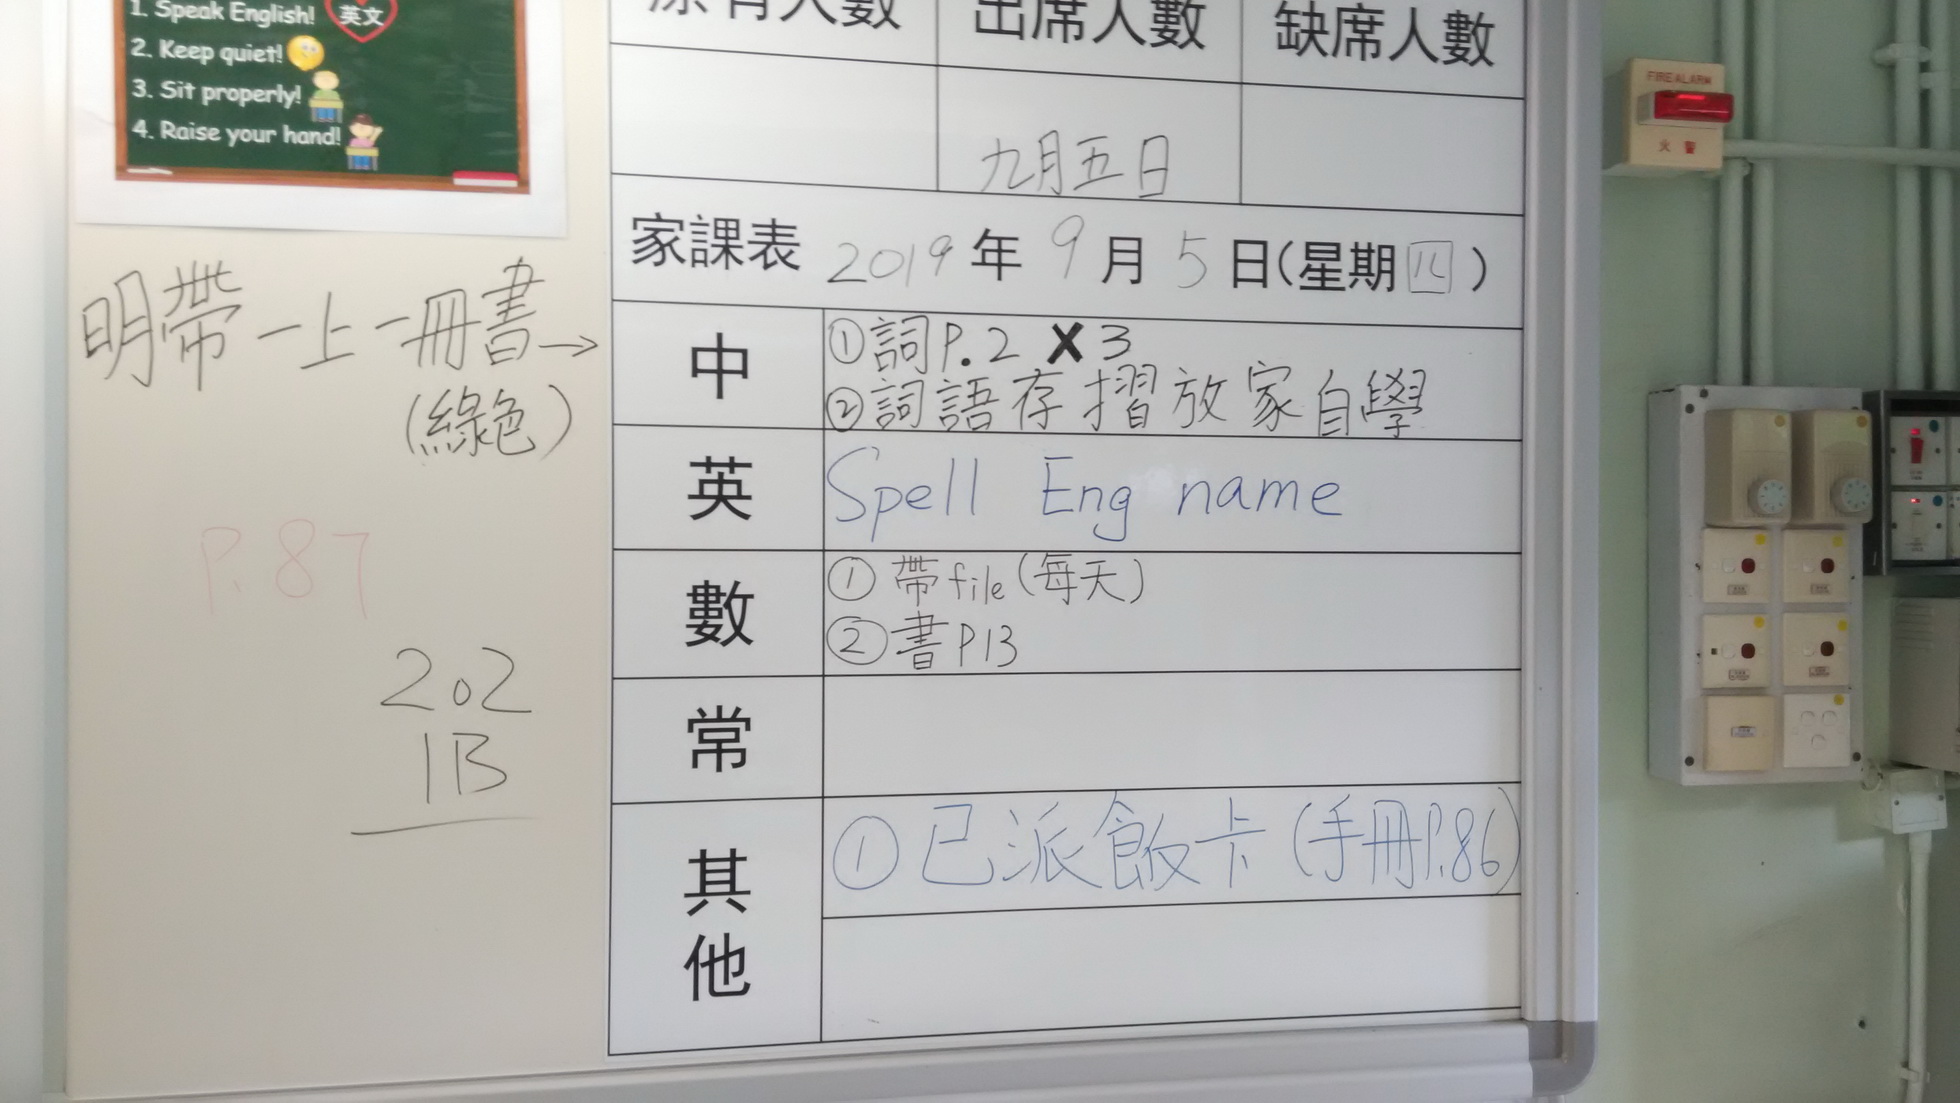 1. Speak English!
英文
2. Keep quiet!
3. Sit properly!
4. Raise your hand!
原有人數 出席人數 缺席人數
九月五日
家課表 2019年9月5日(星期四)
明帶一上一冊書→
(綠色)
P.87
202
1B
中
①詞P.2 ✗3
②詞語存摺放家自學
英
Spell Eng name
數
① 帶file(每天)
②書P13
常
其他
①已派飯卡(手冊P.86)
FIRE ALARM
火警